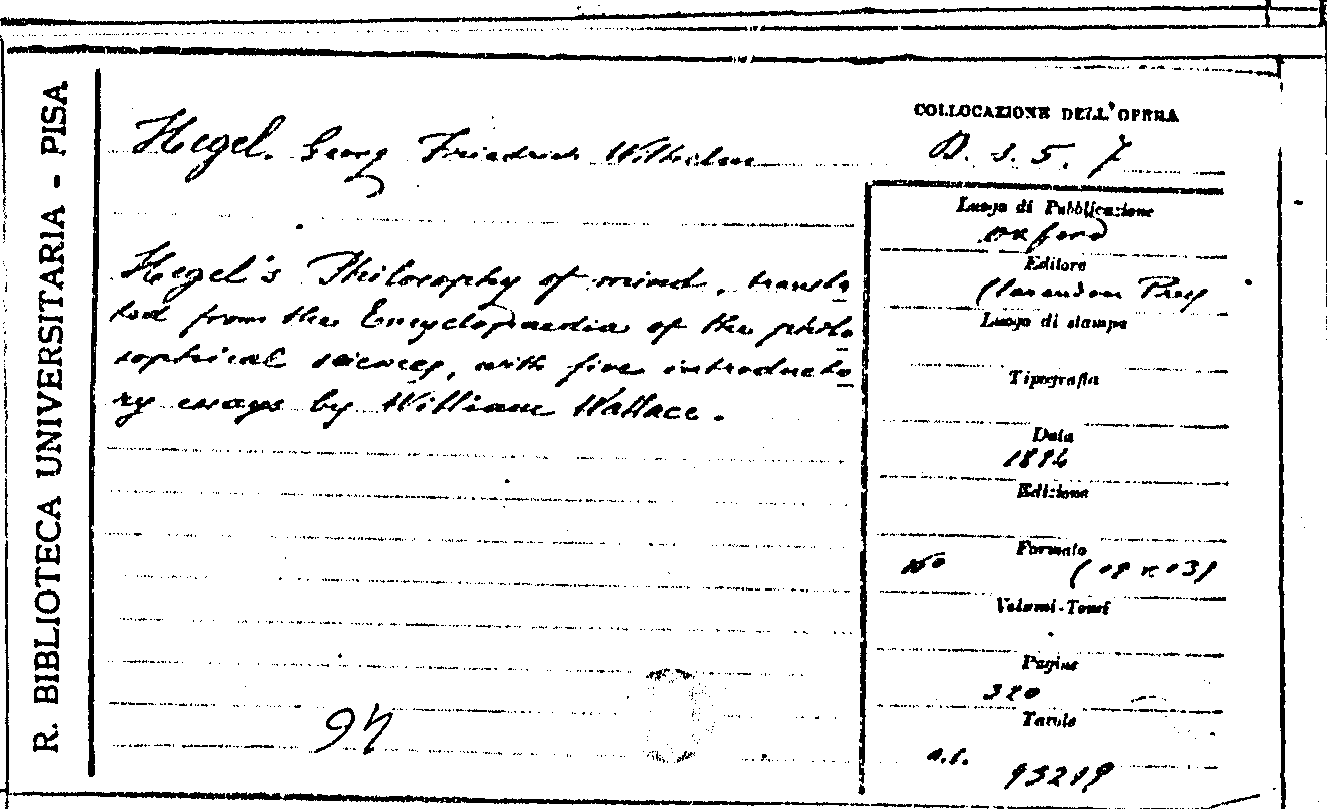 R. BIBLIOTECA UNIVERSITARIA - PISA
Hegel. Georg Friedrich Wilhelm
Hegel's Philosophy of mind, transla
ted from the Encyclopaedia of the philo
sophical sciences, with five introducto
ry essays by William Wallace.
94
COLLOCAZIONE DELL'OPERA
D. 3. 5. 7
Luogo di Pubblicazione
Oxford
Editore
Clarendon Press
Luogo di stampa
Tipografia
Data
1894
Edizione
Formato
Volumi-Tomi
Pagine
320
Tavole
a.c.
93219